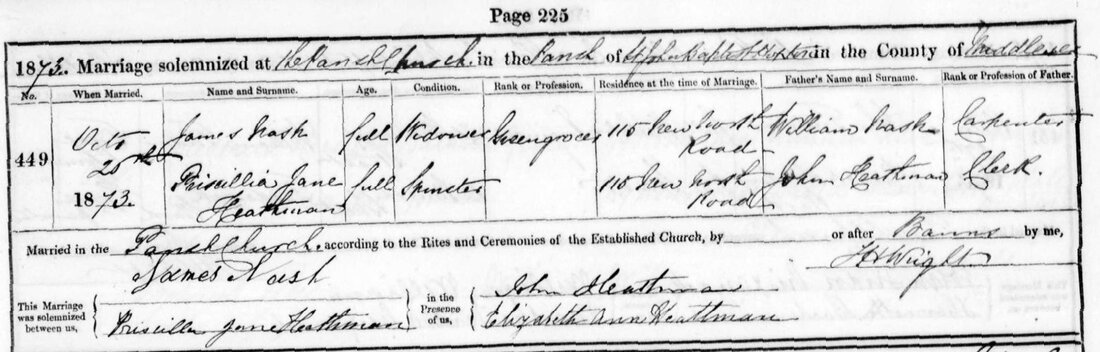 Page 225
1873. Marriage solemnized at the Parish Church in the Parish of St John Baptist Hoxton in the County of Middlesex
No. When Married. Name and Surname. Age. Condition. Rank or Profession. Residence at the time of Marriage. Father's Name and Surname. Rank or Profession of Father.
449 Octr 20th 1873. James Nash full Widower Greengrocer 115 New North Road William Nash Carpenter
Priscillia Jane Heathman full Spinster 115 New North Road John Heathman Clerk.
Married in the Parish Church. according to the Rites and Ceremonies of the Established Church, by or after Banns by me,
James Nash H Wright
This Marriage was solemnized between us, Priscilla Jane Heathman in the Presence of us, John Heathman
Elizabeth Ann Heathman